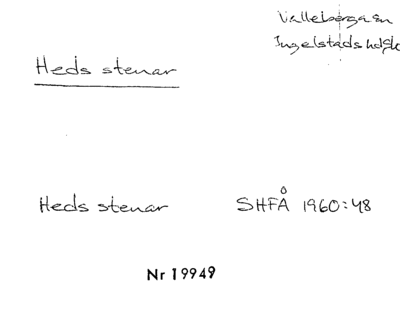 Valleberga sn
Ingelstads hd, Sk
Heds stenar
Heds stenar SHFÅ 1960:48
Nr 19949